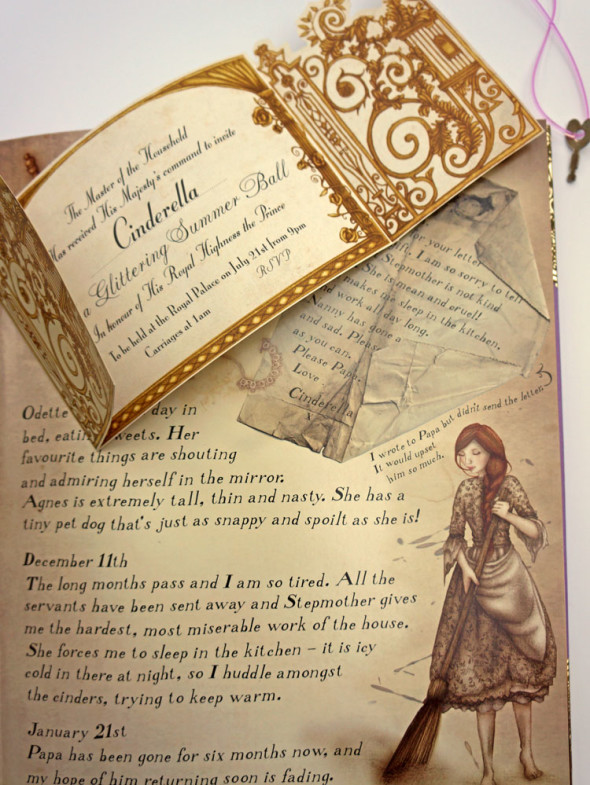 The Master of the Household
Has received His Majesty's command to invite
Cinderella
a Glittering Summer Ball
In honour of His Royal Highness the Prince
To be held at the Royal Palace on July 21st from 9pm
Carriages at 1am
RSVP
for your letter
gift. I am so sorry to tell
Stepmother is not kind
She is mean and cruel!
makes me sleep in the kitchen,
and work all day long.
Nanny has gone a
and sad. Please
as you can.
Please Papa
Love
Cinderella
I wrote to Papa but didn't send the letter.
It would upset
him so much.
Odette day in
bed, eating sweets. Her
favourite things are shouting
and admiring herself in the mirror.
Agnes is extremely tall, thin and nasty. She has a
tiny pet dog that's just as snappy and spoilt as she is!
December 11th
The long months pass and I am so tired. All the
servants have been sent away and Stepmother gives
me the hardest, most miserable work of the house.
She forces me to sleep in the kitchen – it is icy
cold in there at night, so I huddle amongst
the cinders, trying to keep warm.
January 21st
Papa has been gone for six months now, and
my hope of him returning soon is fading.